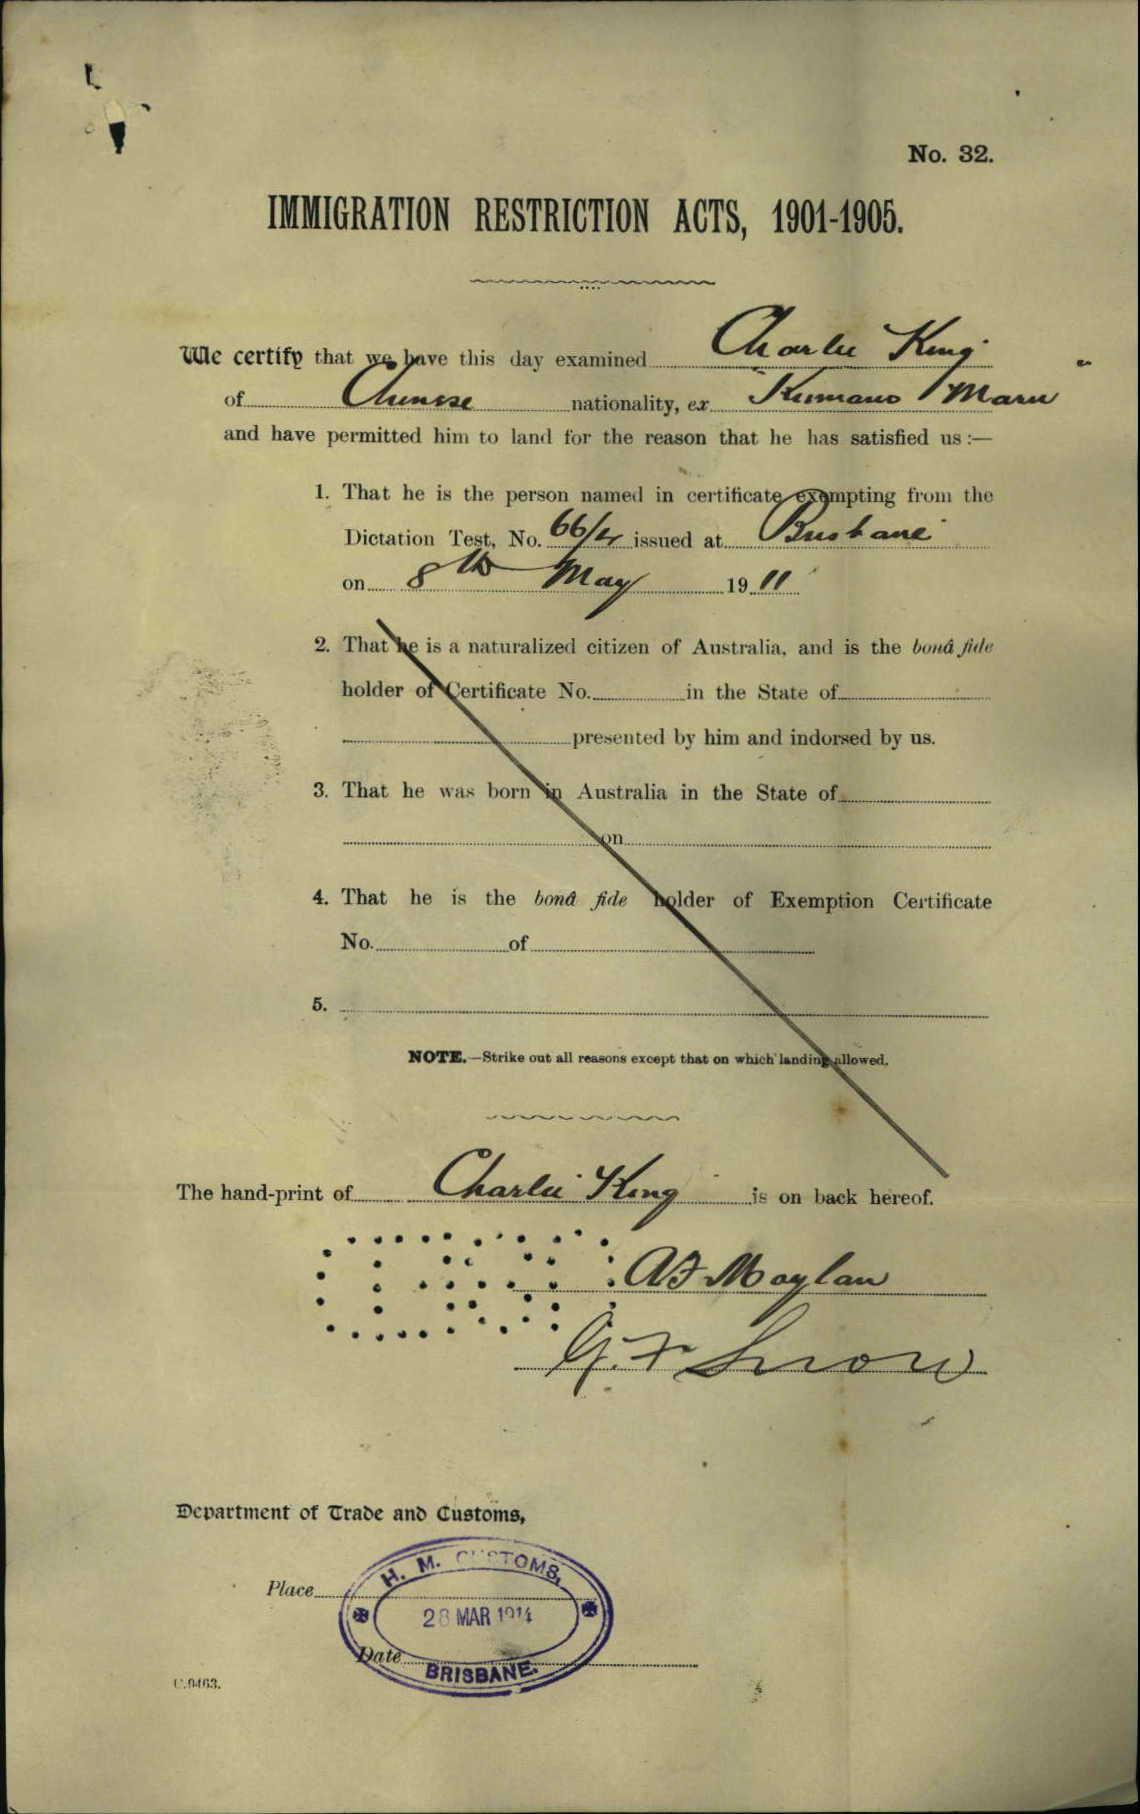 No. 32.
IMMIGRATION RESTRICTION ACTS, 1901-1905.
We certify that we have this day examined Charlie King
of Chinese nationality, ex "Kumano Maru"
and have permitted him to land for the reason that he has satisfied us :—
1. That he is the person named in certificate exempting from the
Dictation Test, No. 66/4 issued at Brisbane
on 8th May 1911
2. That he is a naturalized citizen of Australia, and is the bonâ fide
holder of Certificate No. in the State of
presented by him and indorsed by us.
3. That he was born in Australia in the State of
on
4. That he is the bonâ fide holder of Exemption Certificate
No. of
5.
NOTE.—Strike out all reasons except that on which landing allowed.
The hand-print of Charlie King is on back hereof.
A F Moylan
G. F. Snow
Department of Trade and Customs,
Place
H. M. CUSTOMS,
28 MAR 1914
Date
BRISBANE.
C.9463.